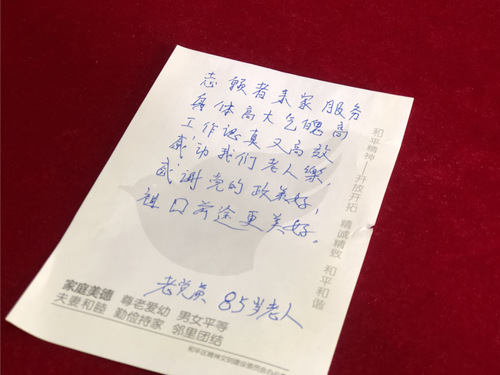 志愿者来家服务
身体高大气魄高
工作認真又高效
感动我们老人樂，
感谢党的政策好，
祖国前途更美好。
老党员 85岁老人
和平精神——开放开拓 精诚精致 和平和谐
家庭美德 尊老爱幼 男女平等
夫妻和睦 勤俭持家 邻里团结
和平区精神文明建设委员会办公